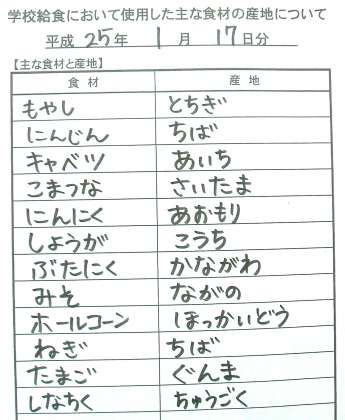 学校給食において使用した主な食材の産地について
平成 25年 1月 17日分
【主な食材と産地】
食材 産地
もやし とちぎ
にんじん ちば
キャベツ あいち
こまつな さいたま
にんにく あおもり
しょうが こうち
ぶたにく かながわ
みそ ながの
ホールコーン ほっかいどう
ねぎ ちば
たまご ぐんま
しなちく ちゅうごく